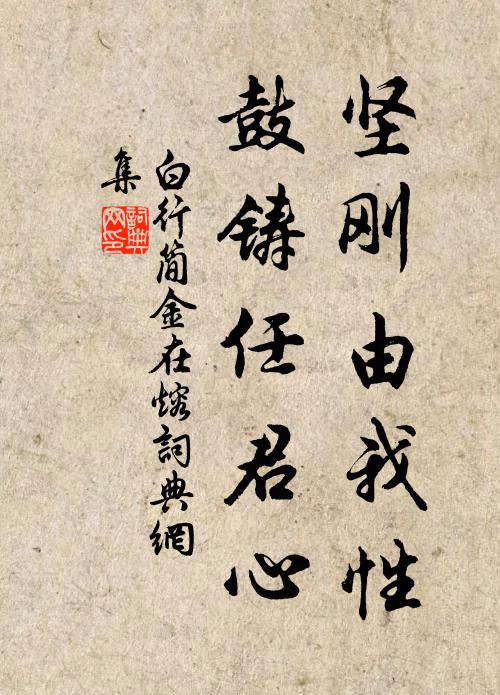 坚刚由我性
鼓铸任君心
白行简金在熔詞典網
集
詞典
网印